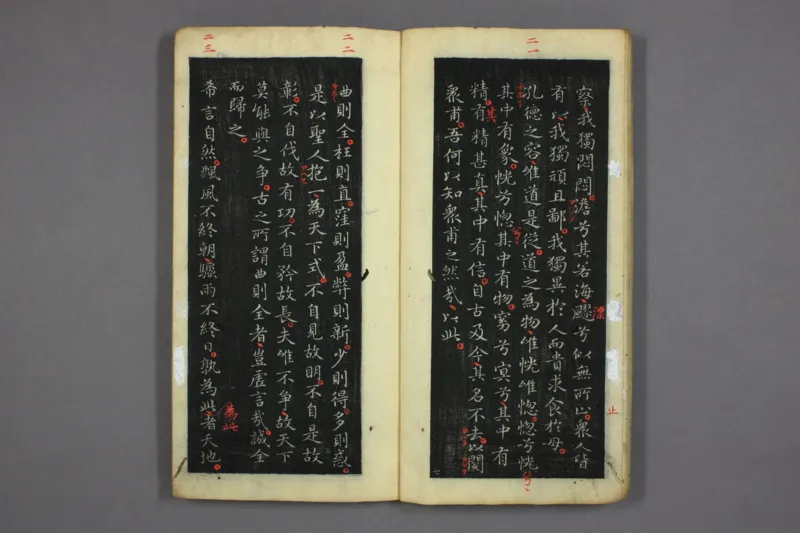 二一
察我獨悶悶澹兮其若海飂兮似無所止衆人皆
有以我獨頑且鄙我獨異於人而貴求食於母
孔德之容唯道是從道之為物唯恍唯惚惚兮恍
其中有象恍兮惚其中有物窈兮冥兮其中有
精其精甚真其中有信自古及今其名不去以閱
衆甫吾何以知衆甫之然哉以此
止
二二
曲則全枉則直窪則盈弊則新少則得多則惑
是以聖人抱一為天下式不自見故明不自是故
彰不自伐故有功不自矜故長夫唯不爭故天下
莫能與之爭古之所謂曲則全者豈虛言哉誠全
而歸之
二三
希言自然飄風不終朝驟雨不終日孰為此者天地
為此